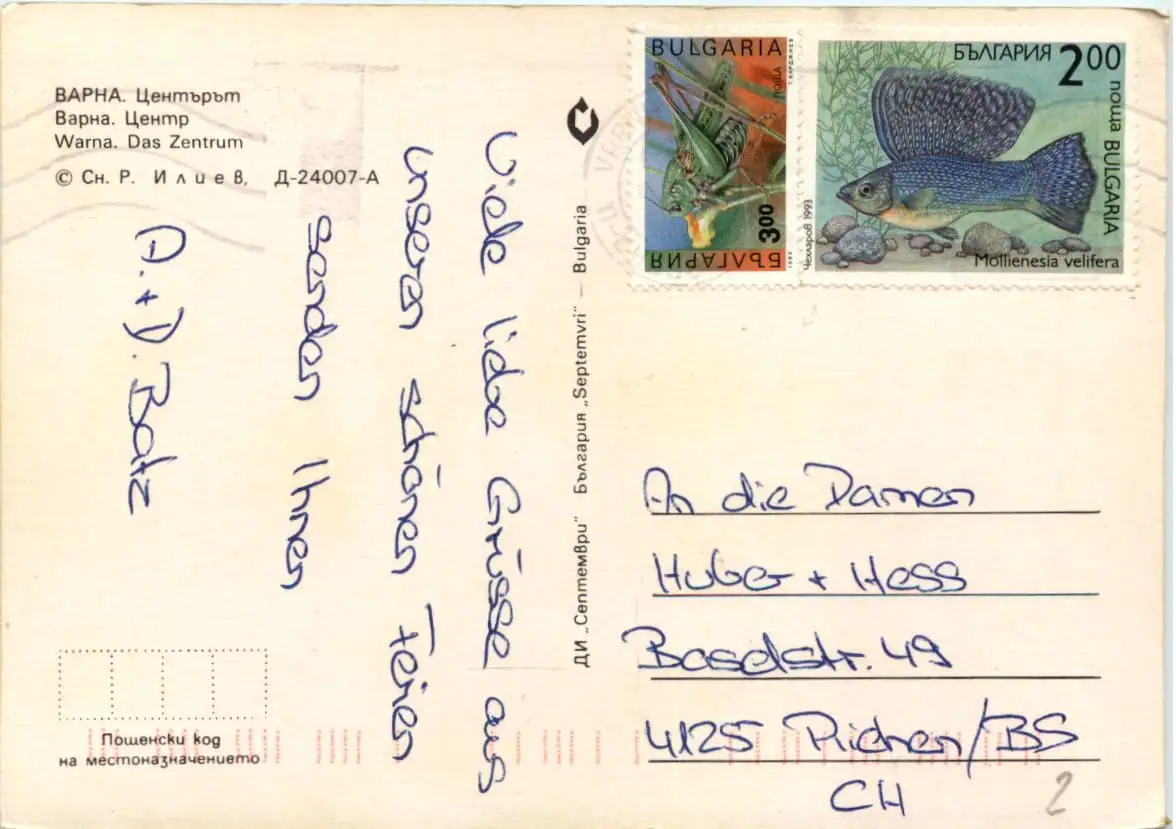 ВАРНА. Центърът
Варна. Центр
Warna. Das Zentrum
© Сн. Р. Илиев, Д-24007-А
Viele liebe Grüsse aus
unseren schönen Ferien
senden Ihnen
A. + D. Batz
Пощенски код
на местоназначението
ДИ „Септември" България „Septemvri" — Bulgaria
BULGARIA
ПОЩА
300
БЪЛГАРИЯ
1992
БЪЛГАРИЯ 2.00
поща BULGARIA
Чехларов 1993
Mollienesia velifera
An die Damen
Huber + Hess
Baselstr. 49
4125 Riehen/BS
CH
2